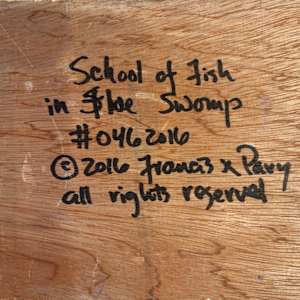 School of Fish
in the Swomp
#0462016
©2016 Francis x Pavy
all rights reserved